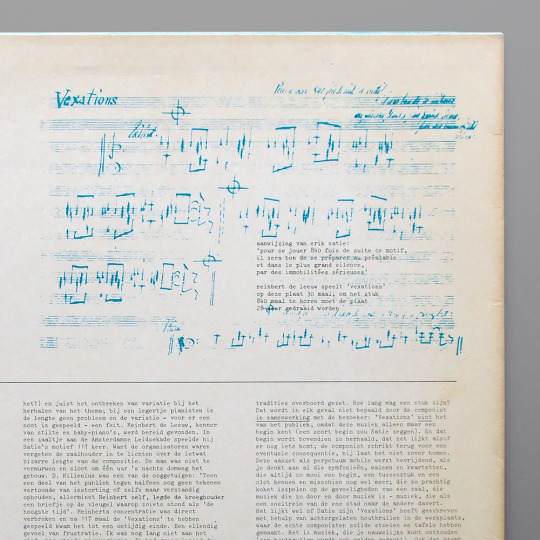 Vexations
aanwijzing van erik satie:
'pour se jouer 840 fois de suite ce motif,
il sera bon de se préparer au préalable
et dans le plus grand silence,
par des immobilités sérieuses'
reinbert de leeuw speelt 'vexations'
op deze plaat 30 maal; om het stuk
840 maal te horen moet de plaat
28 keer gedraaid worden
het?) en juist het ontbreken van variatie bij het
herhalen van het thema; bij een legertje pianisten is
de lengte geen probleem en de variatie - voor er een
noot is gespeeld - een feit. Reinbert de Leeuw, kenner
van stilte en baby-piano's, werd bereid gevonden. In
een zaaltje aan de Amsterdamse Leidsekade speelde hij
Satie's motief 117 keer. Want de organisatoren waren
vergeten de zaalhouder in te lichten over de ietwat
bizarre lengte van de compositie. De man was niet te
vermurwen en sloot om één uur 's nachts domweg het
gebouw. D. Hillenius was een van de ooggetuigen: "Toen
een deel van het publiek tegen halfeen nog geen tekenen
vertoonde van instorting of zelfs maar verstandig
ophouden, allerminst Reinbert zelf, legde de kroeghouder
een briefje op de vleugel waarop zoiets stond als 'de
hoogste tijd'. Reinberts concentratie was direct
verbroken en na 117 maal de 'Vexations' te hebben
gespeeld kwam het tot een ontijdig einde. Een ellendig
gevoel van frustratie. Ik was nog lang niet aan het
tradities overboord gezet. Hoe lang mag een stuk zijn?
Dat wordt in elk geval niet bepaald door de componist
in samenwerking met de bezoeker: 'Vexations' wint het
van het publiek, omdat deze muziek alleen maar een
begin kent (een soort begin zou Satie zeggen). En dat
begin wordt bovendien zo herhaald, dat het lijkt alsof
er nog iets komt; de componist schrikt terug voor een
eventuele consequentie, hij laat het niet zover komen.
Deze aanzet als perpetuum mobile werkt bevrijdend, als
je denkt aan al die symfonieën, walsen en kwartetten,
die altijd zo mooi een begin, een tussenstuk en een
slot kennen en misschien nog wel meer, die zo prachtig
koket inspelen op de gevoeligheden van een zaal, die
muziek die zo door en door muziek is - muziek, die als
een sneltrein van de ene stad naar de andere davert.
Het lijkt wel of Satie zijn 'Vexations' heeft geschreven
met behulp van achtergelaten houtkrullen in de werkplaats,
waar de echte componisten solide stoelen en tafels hebben
gemaakt. Het is muziek, die je nauwelijks kunt onthouden